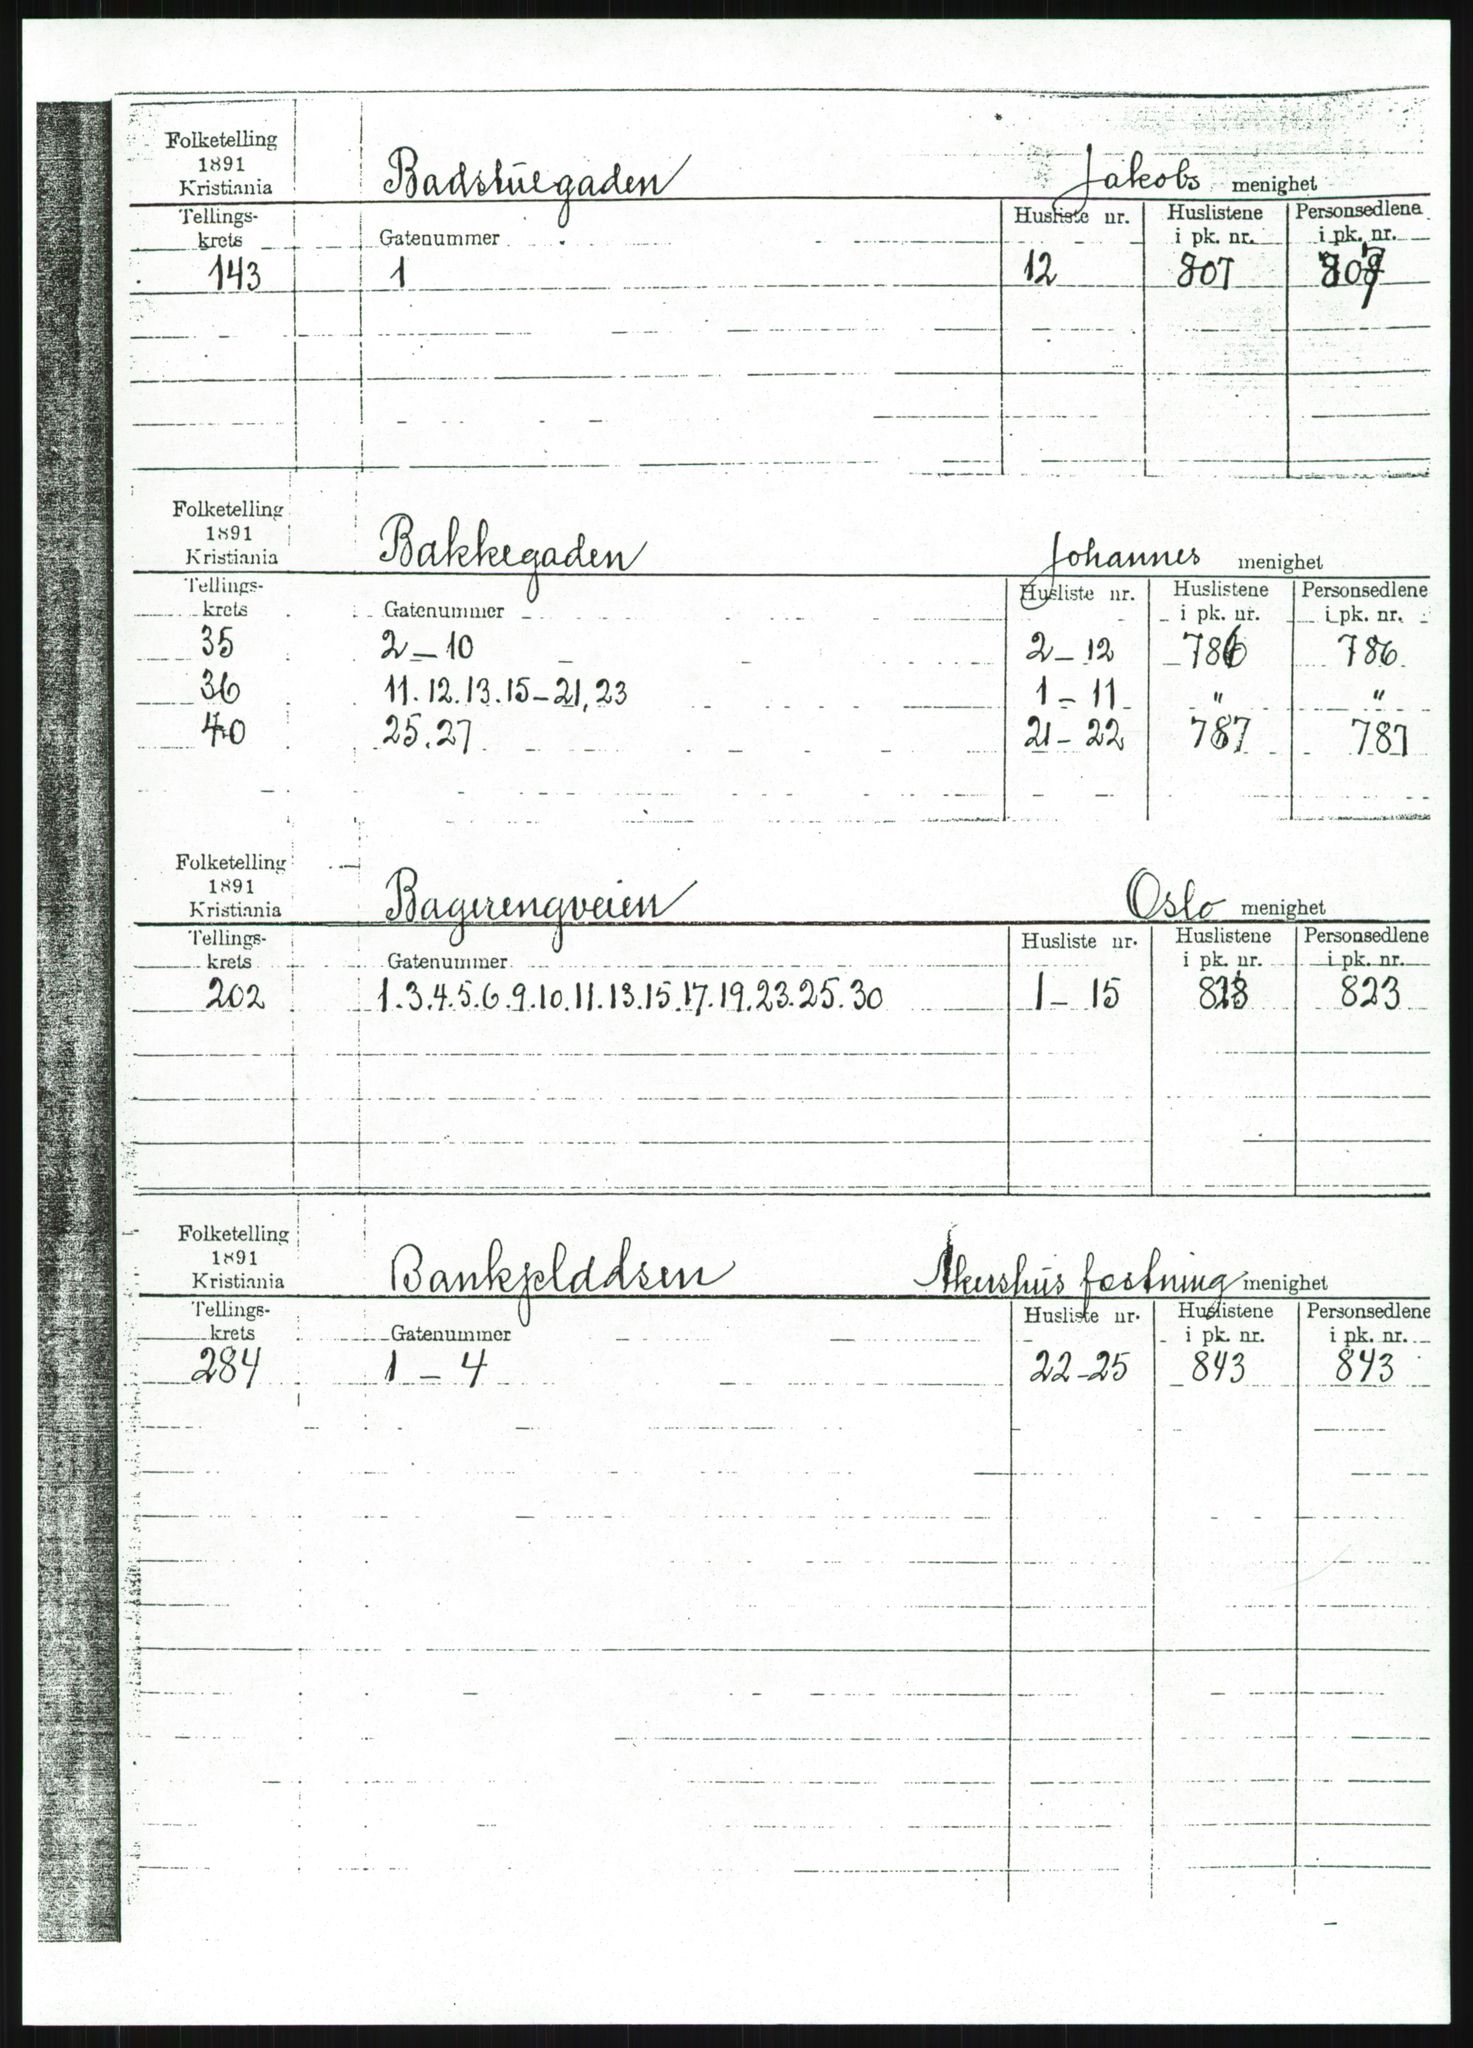 Folketelling
1891
Kristiania
Badstuegaden
Jakobs menighet
Tellings-
krets
Gatenummer
Husliste nr.
Huslistene
i pk. nr.
Personsedlene
i pk. nr.
143 1 12 807 807
Folketelling
1891
Kristiania
Bakkegaden
Johannes menighet
Tellings-
krets
Gatenummer
Husliste nr.
Huslistene
i pk. nr.
Personsedlene
i pk. nr.
35 2 – 10 2 – 12 786 786
36 11. 12. 13. 15 – 21, 23 1 – 11 " "
40 25. 27 21 – 22 787 787
Folketelling
1891
Kristiania
Bagerengveien
Oslo menighet
Tellings-
krets
Gatenummer
Husliste nr.
Huslistene
i pk. nr.
Personsedlene
i pk. nr.
202 1. 3. 4. 5. 6. 9. 10. 11. 13. 15. 17. 19. 23. 25. 30 1 – 15 823 823
Folketelling
1891
Kristiania
Akershus festning menighet
Tellings-
krets
Gatenummer
Husliste nr.
Huslistene
i pk. nr.
Personsedlene
i pk. nr.
284 1 – 4 22 – 25 843 843